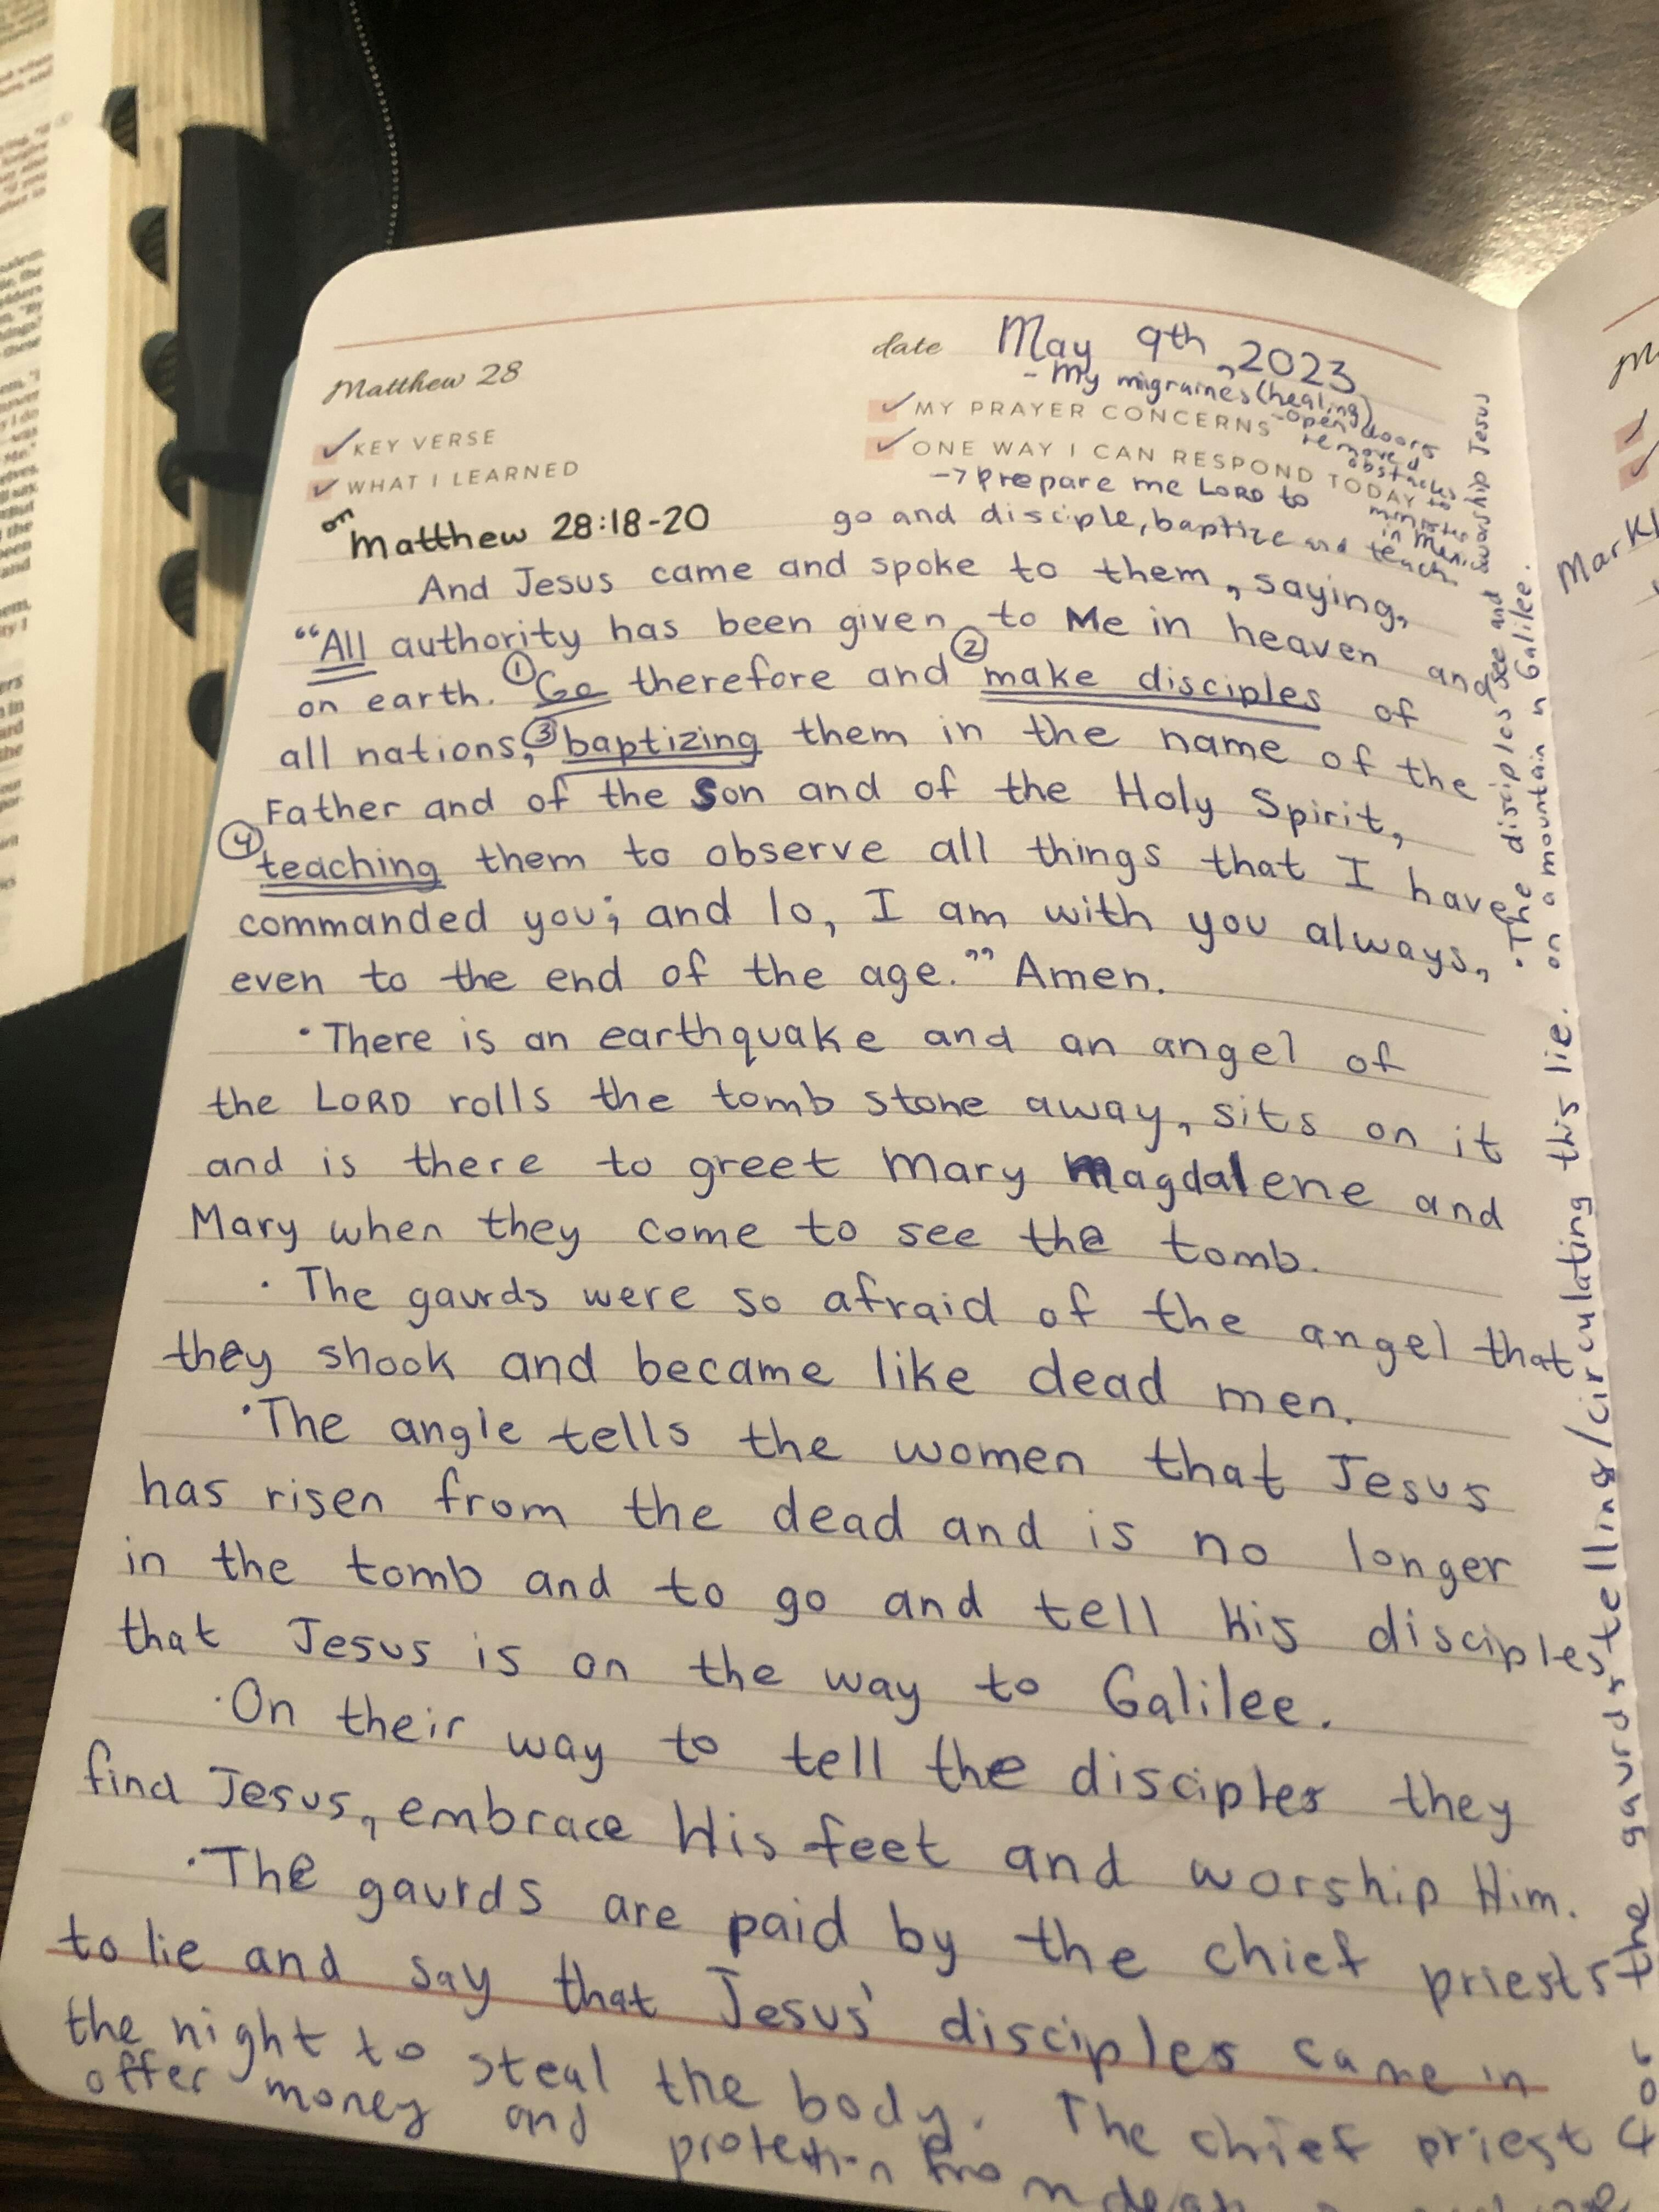 Matthew 28
date May 9th, 2023
- My migraines (healing)
✓ MY PRAYER CONCERNS
- open doors
removed
obstacles
to
minister
in
✓ KEY VERSE
✓ WHAT I LEARNED
✓ ONE WAY I CAN RESPOND TODAY
→ prepare me LORD to
go and disciple, baptize and teach
Matthew 28:18-20
And Jesus came and spoke to them, saying,
“All authority has been given to Me in heaven and
on earth. ① Go therefore and ② make disciples of
all nations, ③ baptizing them in the name of the
Father and of the Son and of the Holy Spirit,
④ teaching them to observe all things that I have
commanded you; and lo, I am with you always,
even to the end of the age.” Amen.
• There is an earthquake and an angel of
the LORD rolls the tomb stone away, sits on it
and is there to greet Mary Magdalene and
Mary when they come to see the tomb.
• The gaurds were so afraid of the angel that
they shook and became like dead men.
• The angle tells the women that Jesus
has risen from the dead and is no longer
in the tomb and to go and tell His disciples
that Jesus is on the way to Galilee.
• On their way to tell the disciples they
find Jesus, embrace His feet and worship Him.
• The gaurds are paid by the chief priests
to lie and say that Jesus' disciples came in
the night to steal the body. The chief priest
offer money and protection from
the gaurds telling/circulating this lie.
• The disciples see and worship Jesus
on a mountain n Galilee.
Mark